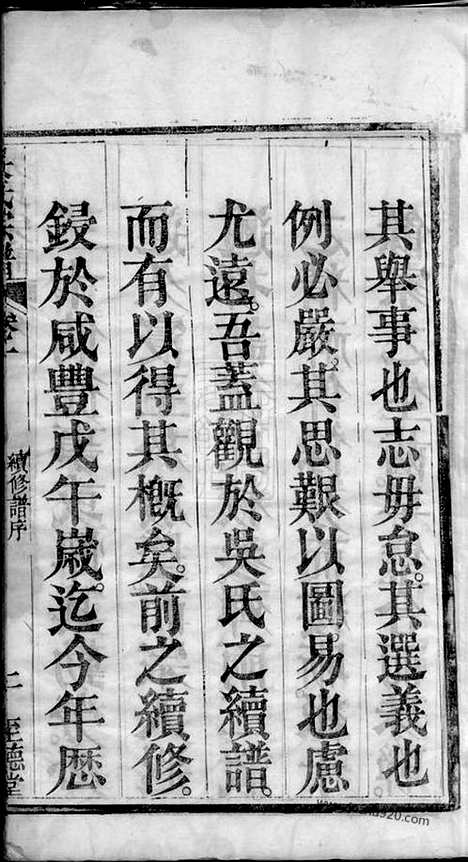 其舉事也志毋怠。其選義也
例必嚴。其思艱以圖易也慮
尤遠。吾蓋觀於吳氏之續譜。
而有以得其概矣。前之續修。
鋟於咸豐戊午歲。迄今年歷
續修譜序
二
至德堂